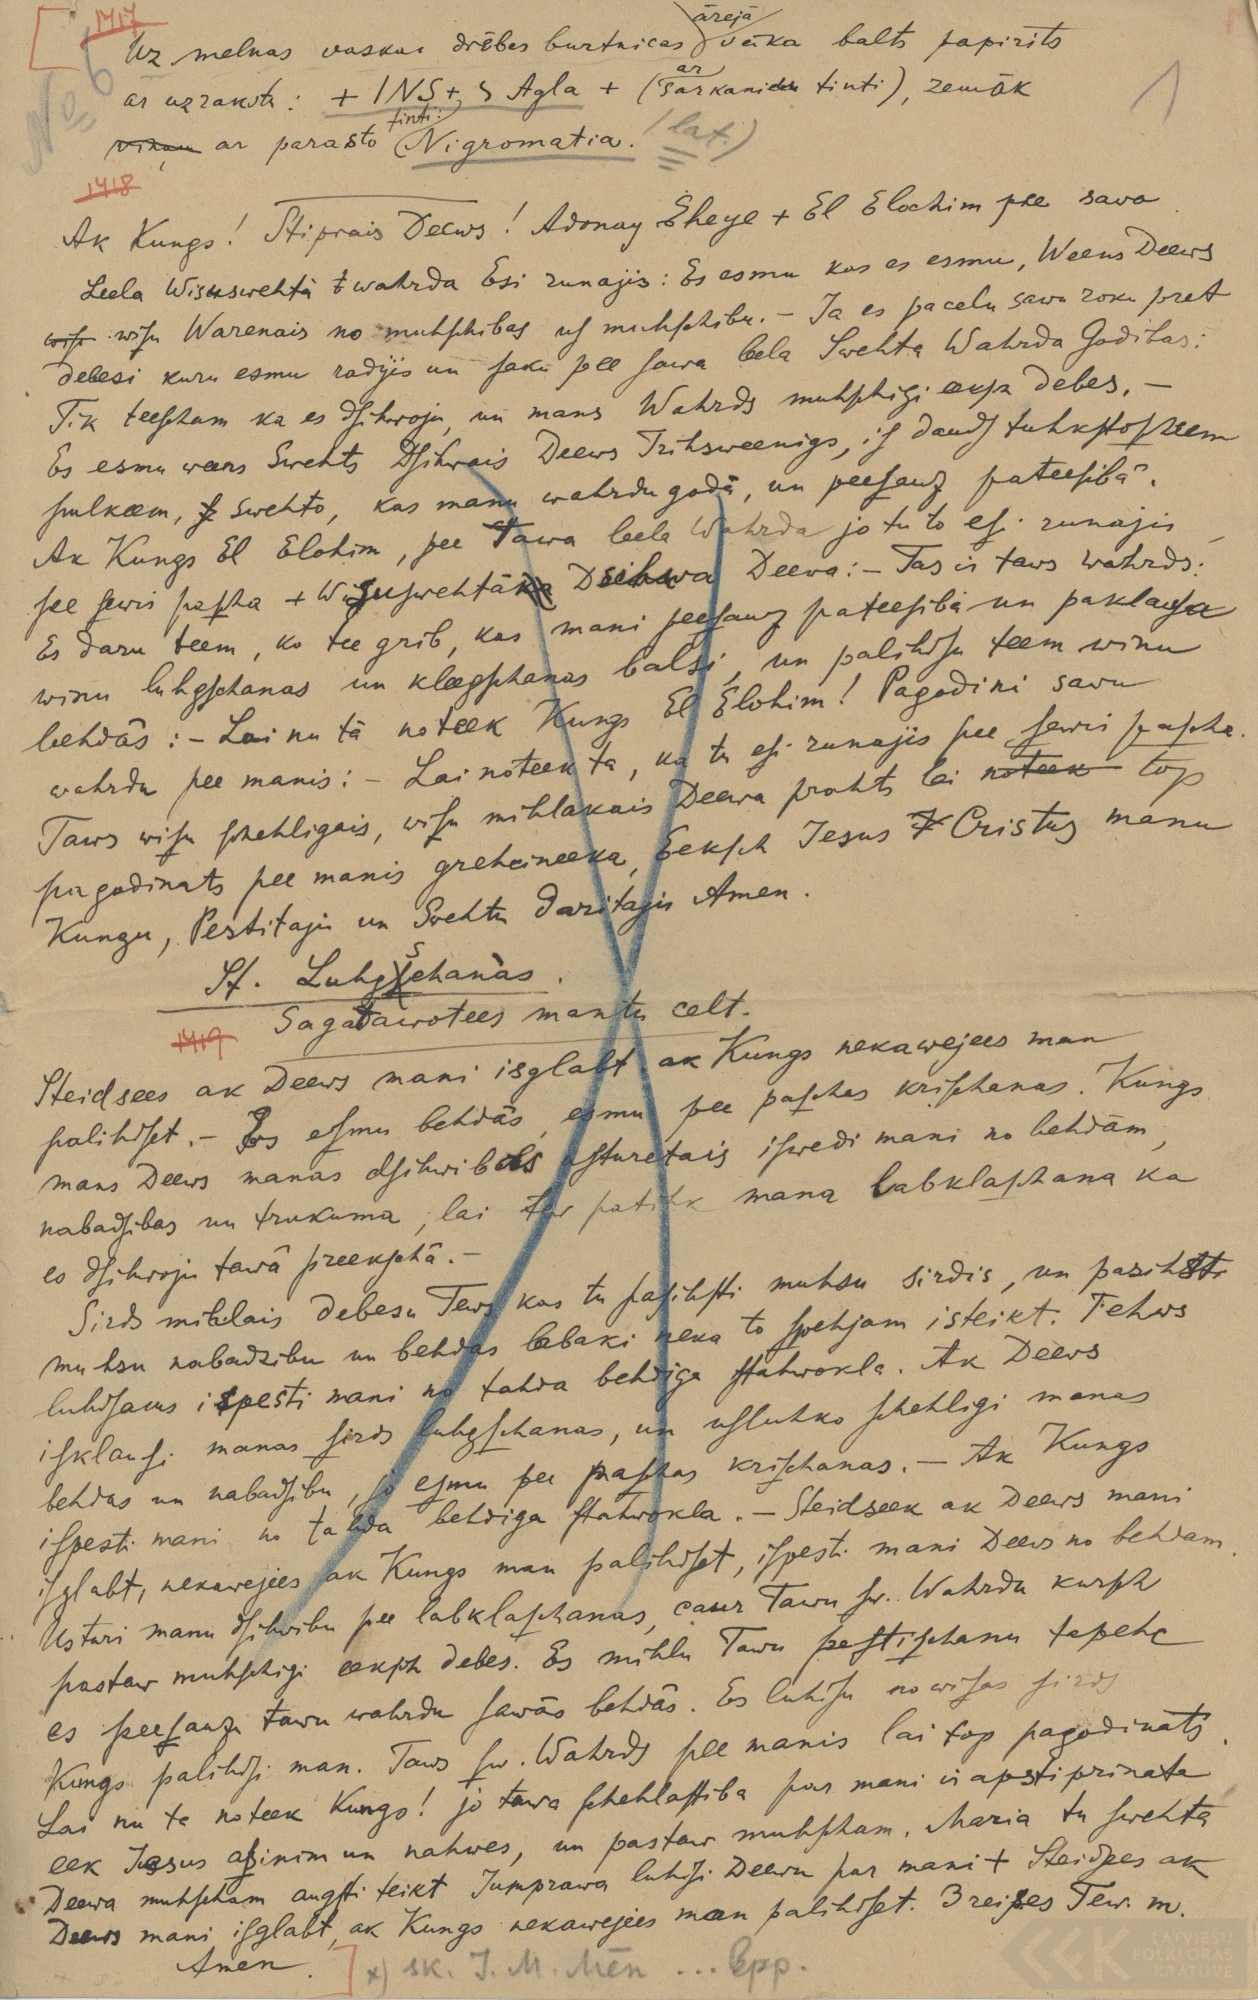 1417
Uz melnas vaskus drēbes burtnīcas ārejā vāka balts papirīts
No 6
ar uzrakstu: + INS + S Agla + (ar sarkanu tinti), zemāk
1
viņam ar parasto tinti: (Nigromatia. (lat.)
1418
Ak Kungs! Stiprais Deews! Adonay Eheye + El Elochim pee sava
Leela Wissuswehtā wahrda Esi runajis: Es esmu kas es esmu, Weens Deews
wisu wisu Warenais no muhschibas us muhschibu. – Ja es pacelu sawu roku pret
debesi kuru esmu radijis un saku pee sawa leela Swehta Wahrda Godibas:
Tik teescham ka es dsihwoju, un mans Wahrds muhschigi eeksch debes. –
Es esmu weens Swehts Dsihwais Deews Trihsweenigs, is daudz tuhkstoscheem
pulkeem, Swehto, kas manu wahrdu godā, un peesauz pateesibā.
Ak Kungs El Elohim, pee Tawa leela Wahrda jo tu to esi runajis
pee sewis pascha + Wissuswehtāka Dsihwa Deewa: – Tas ir taws wahrds:
Es daru teem, ko tee grib, kas mani peesauz pateesibā un paklausa
winu luhgschanas un kleegschanas balsi, un palihdsu teem winu
behdās: – Lai nu tā noteek Kungs El Elohim! Pagodini savu
wahrdu pee manis: – Lai noteek ta, ka tu esi runajis pee sewis pascha.
Taws wisu schehligais, wisu mihlakais Deewa prahts lai noteek top
pagodinats pee manis grehcineeka, Eeksch Jesus Cristus manu
Kungu, Pestitaju un Swehtu daritajis Amen.
St. Luhgschanas.
Sagatawotees mantu celt.
1419
Steidsees ak Deews mani isglabt ak Kungs nekawejees man
palihdset. – Es esmu behdās, esmu pee paschas krischanas. Kungs
mans Deews manas dsihwibas usturetais iswedi mani no behdām,
nabadsibas un trukuma, lai tew patihk mana labklaschana ka
es dsihwoju tawā preekschā. –
Sirds mihlais debesu Tews kas tu pasihsti muhsu sirdis, un pasihsti
muhsu nabadzibu un behdas labaki neka to spehjam isteikt. Tehws
luhdsams ispesti mani no tahda behdiga stahwokla. Ak Deews
isklausi manas sirds luhgschanas, un usluhko schehligi manas
behdas un nabadsibu, jo esmu pee paschas krischanas. – Ak Kungs
ispesti mani no tahda behdiga stahwokla. – Steidseek ak Deews mani
isglabt, nekawejees ak Kungs man palihdset, ispesti mani Deews no behdam.
Usturi manu dsihwibu pee labklaschanas, caur Tawu sw. Wahrdu kursch
pastaw muhschigi eeksch debes. Es mihlu Tawu pestischanu tapehc
es peesauzu tawu wahrdu sawās behdās. Es luhdsu no wisas sirds
Kungs palihdsi man. Taws sw. Wahrds pee manis lai top pagodinats.
Lai nu ta noteek Kungs! jo tawa schehlastiba par mani ir apstiprinata
eek Jesus asinim un nahwes, un pastaw muhscham. Maria tu swehta
Deewa muhscham augsti teikt Jumprawa luhdsi Deewu par mani + Steidsees ak
Deews mani isglabt, ak Kungs nekawejees man palihdset. 3 reises Tew. m.
Amen.
x) sk. J. M. Mēn ... lpp.
LATVIEŠU
FOLKLORAS
KRATUVE